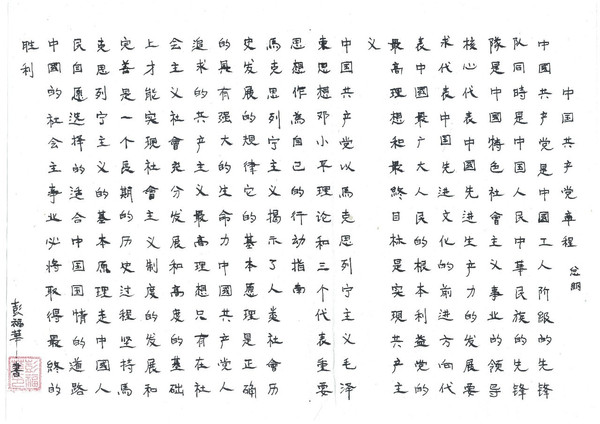 中国共产党章程 总纲
中國共产党是中國工人阶級的先锋
队同時是中國人民中華民族的先锋
隊是中國特色社會主义事业的领导
核心代表中国先进生产力的发展要
求代表中國先进文化的前进方向代
表中國最广大人民的根本利益党的
最高理想和最終目标是实現共产主
义
中国共产党以馬克思列宁主义毛泽
東思想邓小平理论和三个代表重要
思想作為自己的行动指南
馬克思列宁主义揭示了人类社會历
史发展的規律它的基本原理是正确
的具有强大的生命力中國共产党人
追求的共产主义最高理想只有在社
会主义社會充分发展和高度的基础
上才能实現社會主义制度的发展和
完善是一个長期的历史过程坚持馬
克思列宁主义的基本原理走中國人
民自愿选择的适合中国国情的道路
中國的社会主事业必将取得最終的
胜利
彭福華書